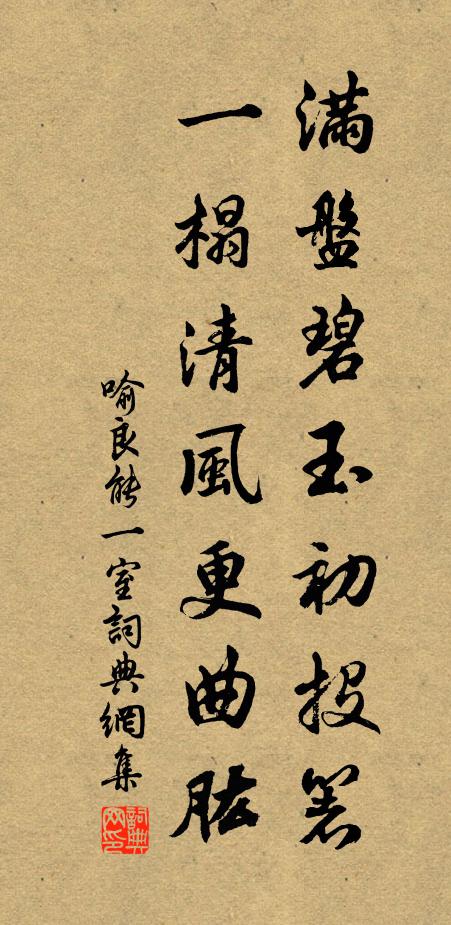 滿盤碧玉初投箸
一榻清風更曲肱
喻良能一室詞典網集
詞典网印